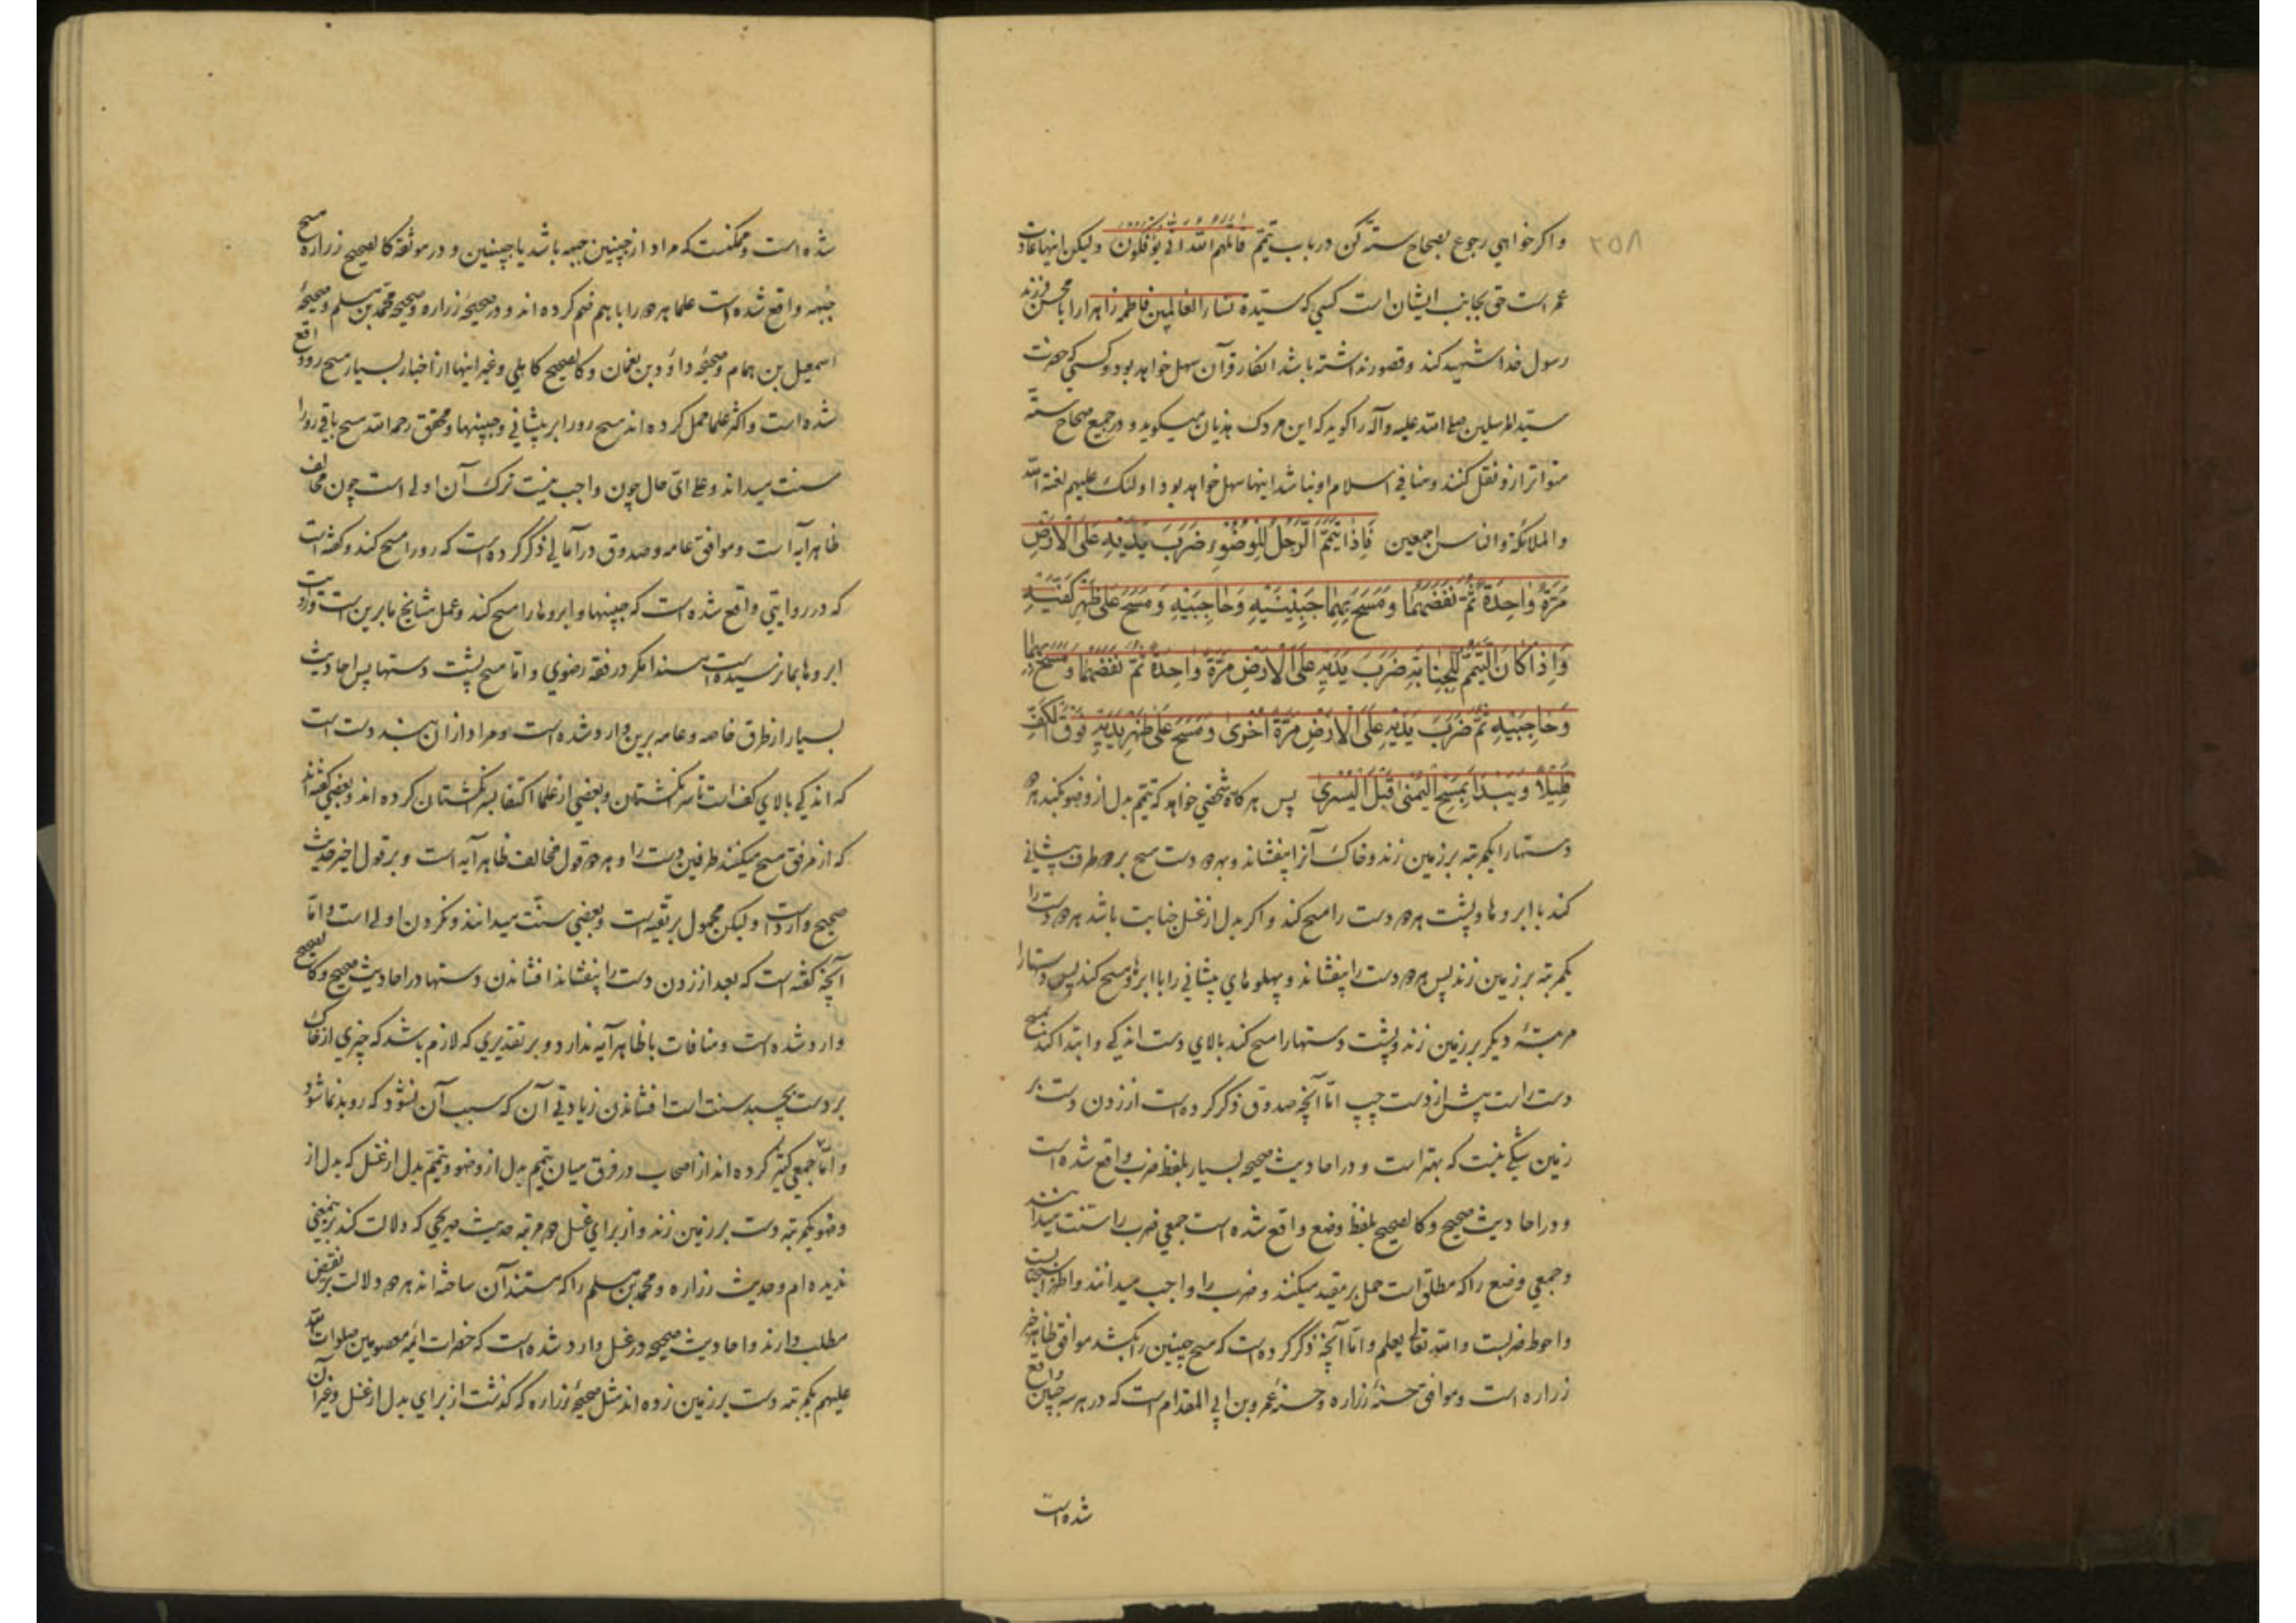 ۲۵۸
واکر خواهي رجوع بصحاح سته کن در باب تیمّم قاتلهم الله انّی یؤفکون ولیکن اینها عادت
عمر است حتی بجانب ایشان است کسي که سیّدة نساء العالمین فاطمه زهرا را با محسن فرزند
رسول خدا شهید کند و قصور نداشته باشد انکار قرآن سهل خواهد بود و کسی که حضرت
سید المرسلین صلی الله علیه وآله را کوید که این مردک هذیان میکوید و در جمیع صحاح ستّه
متواتر ازو نقل کنند و منافي اسلام او نباشد اینها سهل خواهد بود اولئک علیهم لعنة الله
والملائکة والناس اجمعین فَاِذَا تَیَمَّمَ الرَّجُلُ لِلْوُضُوءِ ضَرَبَ یَدَیْهِ عَلَی الْاَرْضِ
مَرَّةً وَاحِدَةً ثُمَّ نَفَضَهُمَا وَمَسَحَ بِهِمَا جَبِینَیْهِ وَحَاجِبَیْهِ وَمَسَحَ عَلَی ظَهْرِ کَفَّیْهِ
وَاِذَا کَانَ التَّیَمُّمُ لِلْجَنَابَةِ ضَرَبَ یَدَیْهِ عَلَی الْاَرْضِ مَرَّةً وَاحِدَةً ثُمَّ نَفَضَهُمَا وَمَسَحَ بِهِمَا
وَحَاجِبَیْهِ ثُمَّ ضَرَبَ یَدَیْهِ عَلَی الْاَرْضِ مَرَّةً اُخْرَی وَمَسَحَ عَلَی ظَهْرِ یَدَیْهِ فَوْقَ الْکَفِّ
قَلِیلًا وَیَبْدَأُ بِمَسْحِ الْیُمْنَی قَبْلَ الْیُسْرَی پس هرکاه شخصي خواهد که تیمّم بدل از وضو بکند هر دو
دستها را یکمرتبه بر زمین زند و خاک آنرا بیفشاند و بهر دو دست مسح بر دو طرف پیشاني
کند با ابروها و پشت هر دو دست را مسح کند و اکر بدل از غسل جنابت باشد هر دو دست را
یکمرتبه بر زمین زند پس هر دو دست را بیفشاند و پهلوهاي پیشاني را با ابروها مسح کند پس دستها را
مرتبهٔ دیکر بر زمین زند و پشت دستها را مسح کند بالاي دست اندکي و ابتدا کند بمسح
دست راست پیش از دست چپ امّا آنچه صدوق ذکر کرده است از زدن دست بر
زمین شکّي نیست که بهتر است و در احادیث صحیحه بسیار بلفظ ضرب واقع شده است
و در احادیث صحیح و کالصحیح بلفظ وضع واقع شده است جمعي ضرب را سنّت میدانند
و جمعي وضع را که مطلق است حمل بر مقید میکنند و ضرب را واجب میدانند و اظهر استحبابست
و احوط ضربست والله تعالی یعلم و امّا آنچه ذکر کرده است که مسح جبینین را بکشد موافق ظاهر خبر
زراره است و موافق حسنهٔ زراره و حسنهٔ عمرو بن ابي المقدام است که در هر سه جبین واقع
شده است
شده است و ممکنست که مراد از جبینین جبهه باشد یا جبینین و در موثقه کالصحیح زراره مسح
جبهه واقع شده است علما هر دو را با هم ضم کرده اند و در صحیحهٔ زراره و صحیحهٔ محمّد بن مسلم و صحیحهٔ
اسمعیل بن همام و صحیحهٔ داوٗد بن نعمان و کالصحیح کاهلي و غیر اینها از اخبار بسیار مسح رو واقع
شده است و اکثر علما حمل کرده اند مسح رو را بر پیشاني و جبینها و محقق رحمه الله مسح باقي رو را
سنت میداند و علی ايّ حال چون واجب نیست ترک آن اولی است چون مخالف
ظاهر آیه است و موافق عامه و صدوق در امالي ذکر کرده است که رو را مسح کند و کفته است
که در روایتي واقع شده است که جبینها و ابروها را مسح کند و عمل مشایخ ما برین است و روایت
ابروها بما نرسیده است مسندا مکر در فقه رضوي و امّا مسح پشت دستها پس احادیث
بسیار از طرق خاصه و عامه برین وارد شده است و مراد از آن بند دست است
که اندکي بالاي کف است تا سر انکشتان و بعضي از علما اکتفا بسر انکشتان کرده اند و بعضي کفته اند
که از مرفق مسح میکنند طرفین دست را و هر دو قول مخالف ظاهر آیه است و بر قول اخیر حدیث
صحیح وارد است ولیکن محمول بر تقیه است و بعضي سنّت میدانند و نکردن اولی است و امّا
آنچه کفته است که بعد از زدن دست را بیفشاند افشاندن دستها در احادیث صحیح و کالصحیح
وارد شده است و منافات با ظاهر آیه ندارد و بر تقدیري که لازم باشد که چیزي از خاک
بر دست بچسبد سنت است افشاندن زیادتي آن که سبب آن نشود که رو بدنما شود
و امّا جمعي کثیر کرده اند از اصحاب در فرق میان تیمم بدل از وضو و تیمّم بدل از غسل که بدل از
وضو یکمرتبه دست بر زمین زند و از براي غسل دو مرتبه حدیث صریحي که دلالت کند برینمعني
ندیده ام و حدیث زراره و محمد بن مسلم را که مستند آن ساخته اند هر دو دلالت بر نقیض
مطلب دارند و احادیث صحیحه در غسل وارد شده است که حضرات ائمه معصومین صلوات الله
علیهم یکمرتبه دست بر زمین زده اند مثل صحیحهٔ زراره که کذشت از براي بدل از غسل و غیر آن